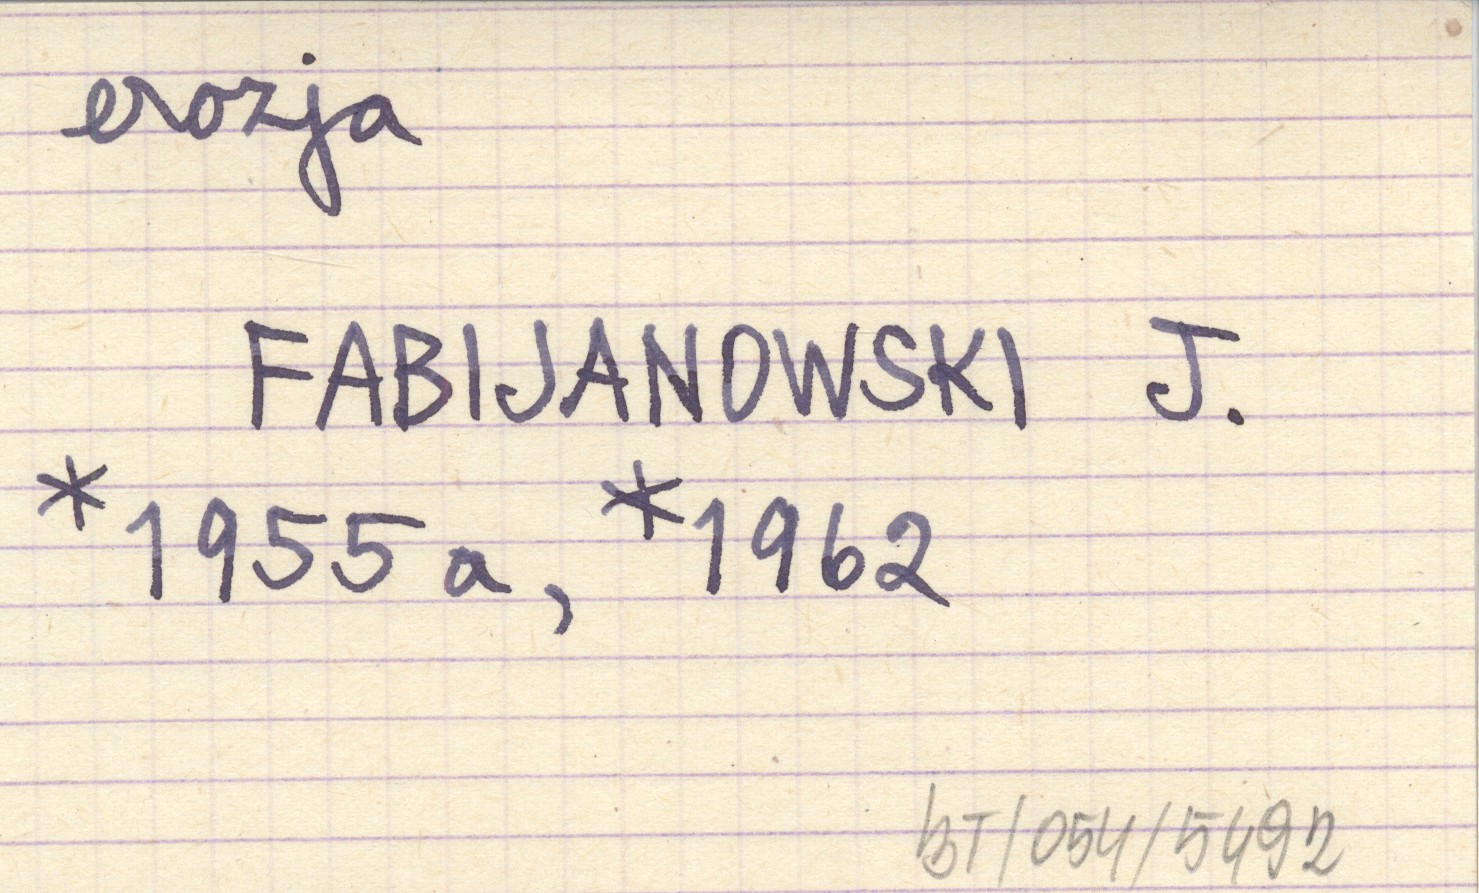 erozja
FABIJANOWSKI J.
*1955a, *1962
BT/054/5492